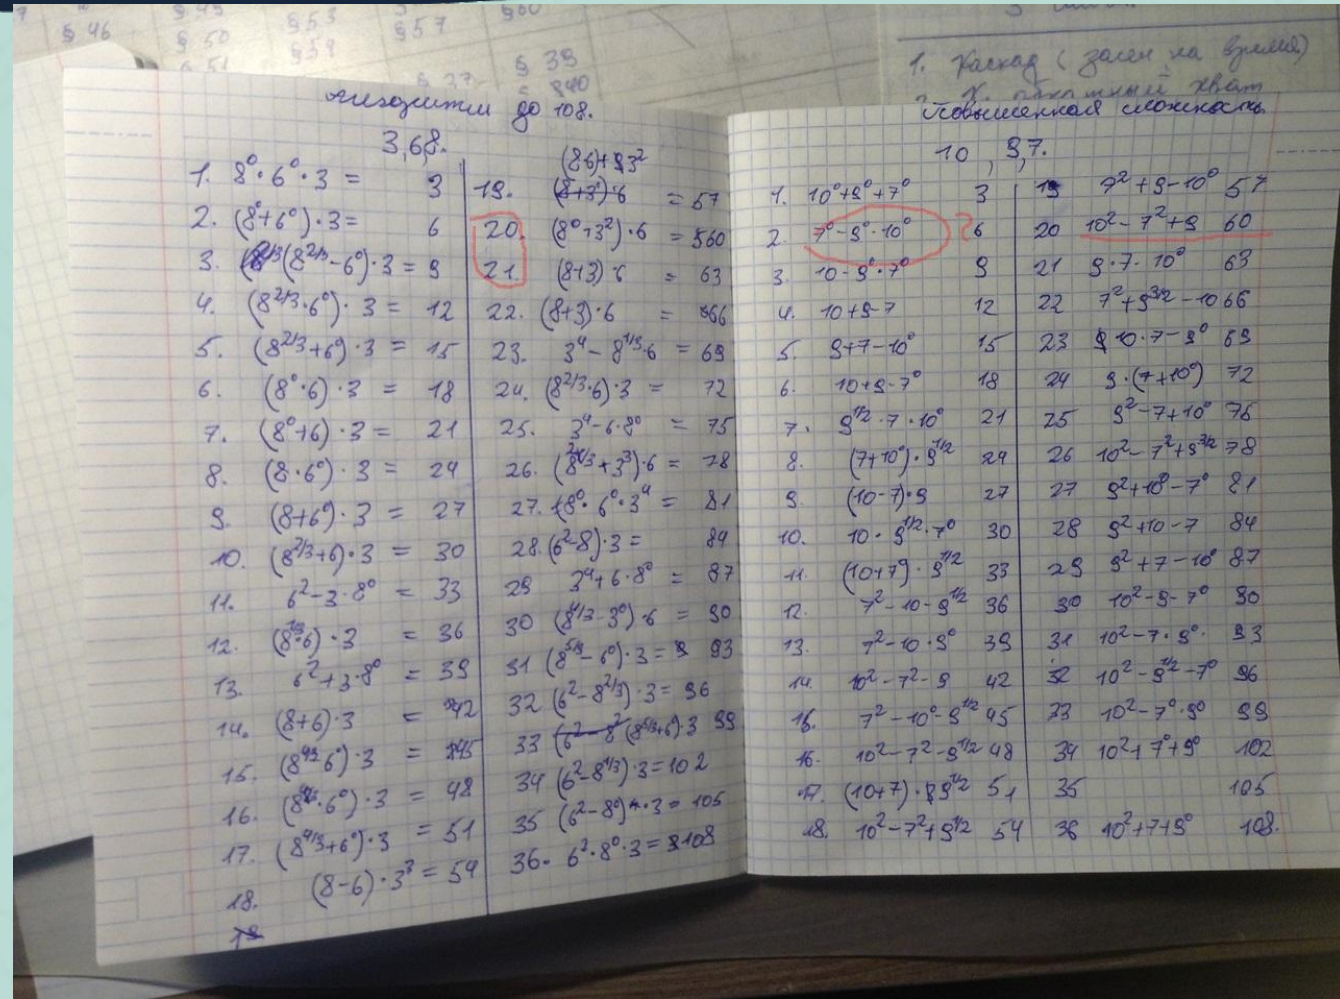 § 46
§ 50
§ 53
§ 57
§ 60
§ 51
§ 54
§ 37
§ 39
§ 40
1. Каскад (засек на время)
2. К. обхатный хват
до 108.
3,6,8.
1. 8⁰·6⁰·3 = 3
2. (8⁰+6⁰)·3 = 6
3. (8^2/3-6⁰)·3 = 9
4. (8^2/3·6⁰)·3 = 12
5. (8^2/3+6⁰)·3 = 15
6. (8⁰·6)·3 = 18
7. (8⁰+6)·3 = 21
8. (8·6⁰)·3 = 24
9. (8+6⁰)·3 = 27
10. (8^2/3+6)·3 = 30
11. 6²-3·8⁰ = 33
12. (8^1/3·6)·3 = 36
13. 6²+3·8⁰ = 39
14. (8+6)·3 = 42
15. (8^4/3-6⁰)·3 = 45
16. (8^4/3·6⁰)·3 = 48
17. (8^4/3+6⁰)·3 = 51
18. (8-6)·3³ = 54
(8·6)+3²
19. (8+3)·6 = 57
20. (8⁰+3²)·6 = 60
21. (8+3)·6 = 63
22. (8+3)·6 = 66
23. 3⁴-8^1/3·6 = 69
24. (8^2/3·6)·3 = 72
25. 3⁴-6·8⁰ = 75
26. +3³)·6 = 78
27. 8⁰·6⁰·3⁴ = 81
28. (6²-8)·3 = 84
29 3⁴+6·8⁰ = 87
30 (8^4/3-3⁰)·6 = 90
31 (8^5/3-6⁰)·3 = 93
32 (6²-8^2/3)·3 = 96
33 (8^5/3+6⁰)·3 99
34 (6²-8^1/3)·3 = 102
35 (6²-8⁰)·3 = 105
36. 6²·8⁰·3 = 108
Повышенная сложность
10, 9,7.
1. 10⁰+9⁰+7⁰ 3
2. 7⁰-9⁰·10⁰ ? 6
3. 10-9⁰·7⁰ 9
4. 10+9-7 12
5. 9+7-10⁰ 15
6. 10+9-7⁰ 18
7. 9^1/2·7·10⁰ 21
8. (7+10⁰)·9^1/2 24
9. (10-7)·9 27
10. 10·9^1/2·7⁰ 30
11. (10+7⁰)·9^1/2 33
12. 7²-10-9^1/2 36
13. 7²-10·9⁰ 39
14. 10²-7²-9 42
15. 7²-10⁰-9^1/2 45
16. 10²-7²-9^1/2 48
17. (10+7)·9^1/2 51
18. 10²-7²+9^1/2 54
19 7²+9-10⁰ 57
20 10²-7²+9 60
21 9·7·10⁰ 63
22 7²+9^3/2-10 66
23 10·7-9⁰ 69
24 9·(7+10⁰) 72
25 9²-7+10⁰ 75
26 10²-7²+9^3/2 78
27 9²+10⁰-7⁰ 81
28 9²+10-7 84
29 9²+7-10⁰ 87
30 10²-9-7⁰ 90
31 10²-7·9⁰ 93
32 10²-9^1/2-7⁰ 96
33 10²-7⁰·9⁰ 99
34 10²+7⁰+9⁰ 102
35 105
36 10²+7+9⁰ 108.